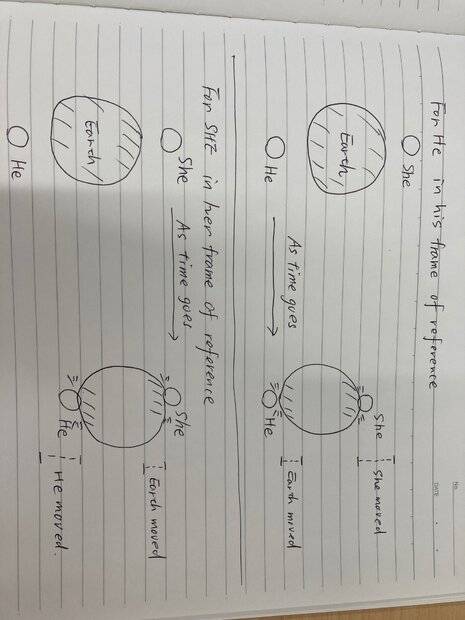 No.
DATE
For He in his frame of reference
She
Earth
He
As time goes
She
He
She moved
Earth moved
For SHE in her frame of reference
She
Earth
He
As time goes
She
He
Earth moved
He moved.